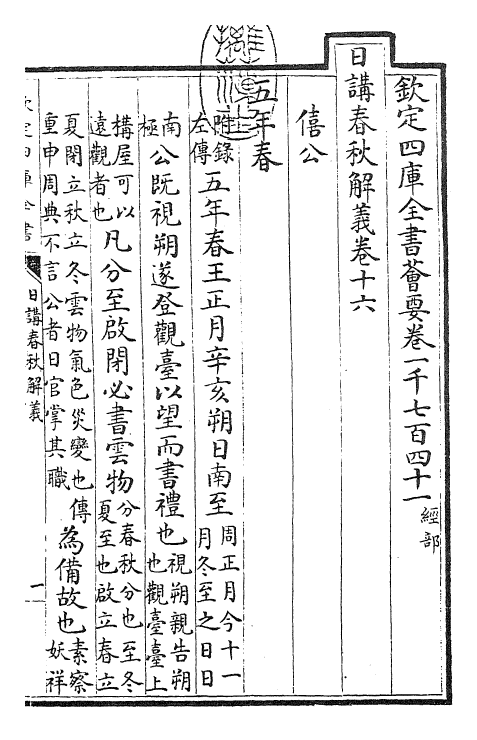 欽定四庫全書薈要卷一千七百四十一 經部
日講春秋解義卷十六
僖公
五年春
附錄
左傳
五年春王正月辛亥朔日南至
周正月今十一
月冬至之日日
南
極
公既視朔遂登觀臺以望而書禮也
視朔親告朔
也觀臺臺上
構屋可以
遠觀者也
凡分至啟閉必書雲物
分春秋分也至冬
夏至也啟立春立
夏閉立秋立冬雲物氣色災變也傳
重申周典不言公者日官掌其職
為備故也
素察
妖祥
欽定四庫全書
日講春秋解義
一